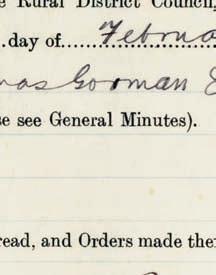 e Rural District Council,
day of Februa
mas Gorman
se see General Minutes).
read, and Orders made the